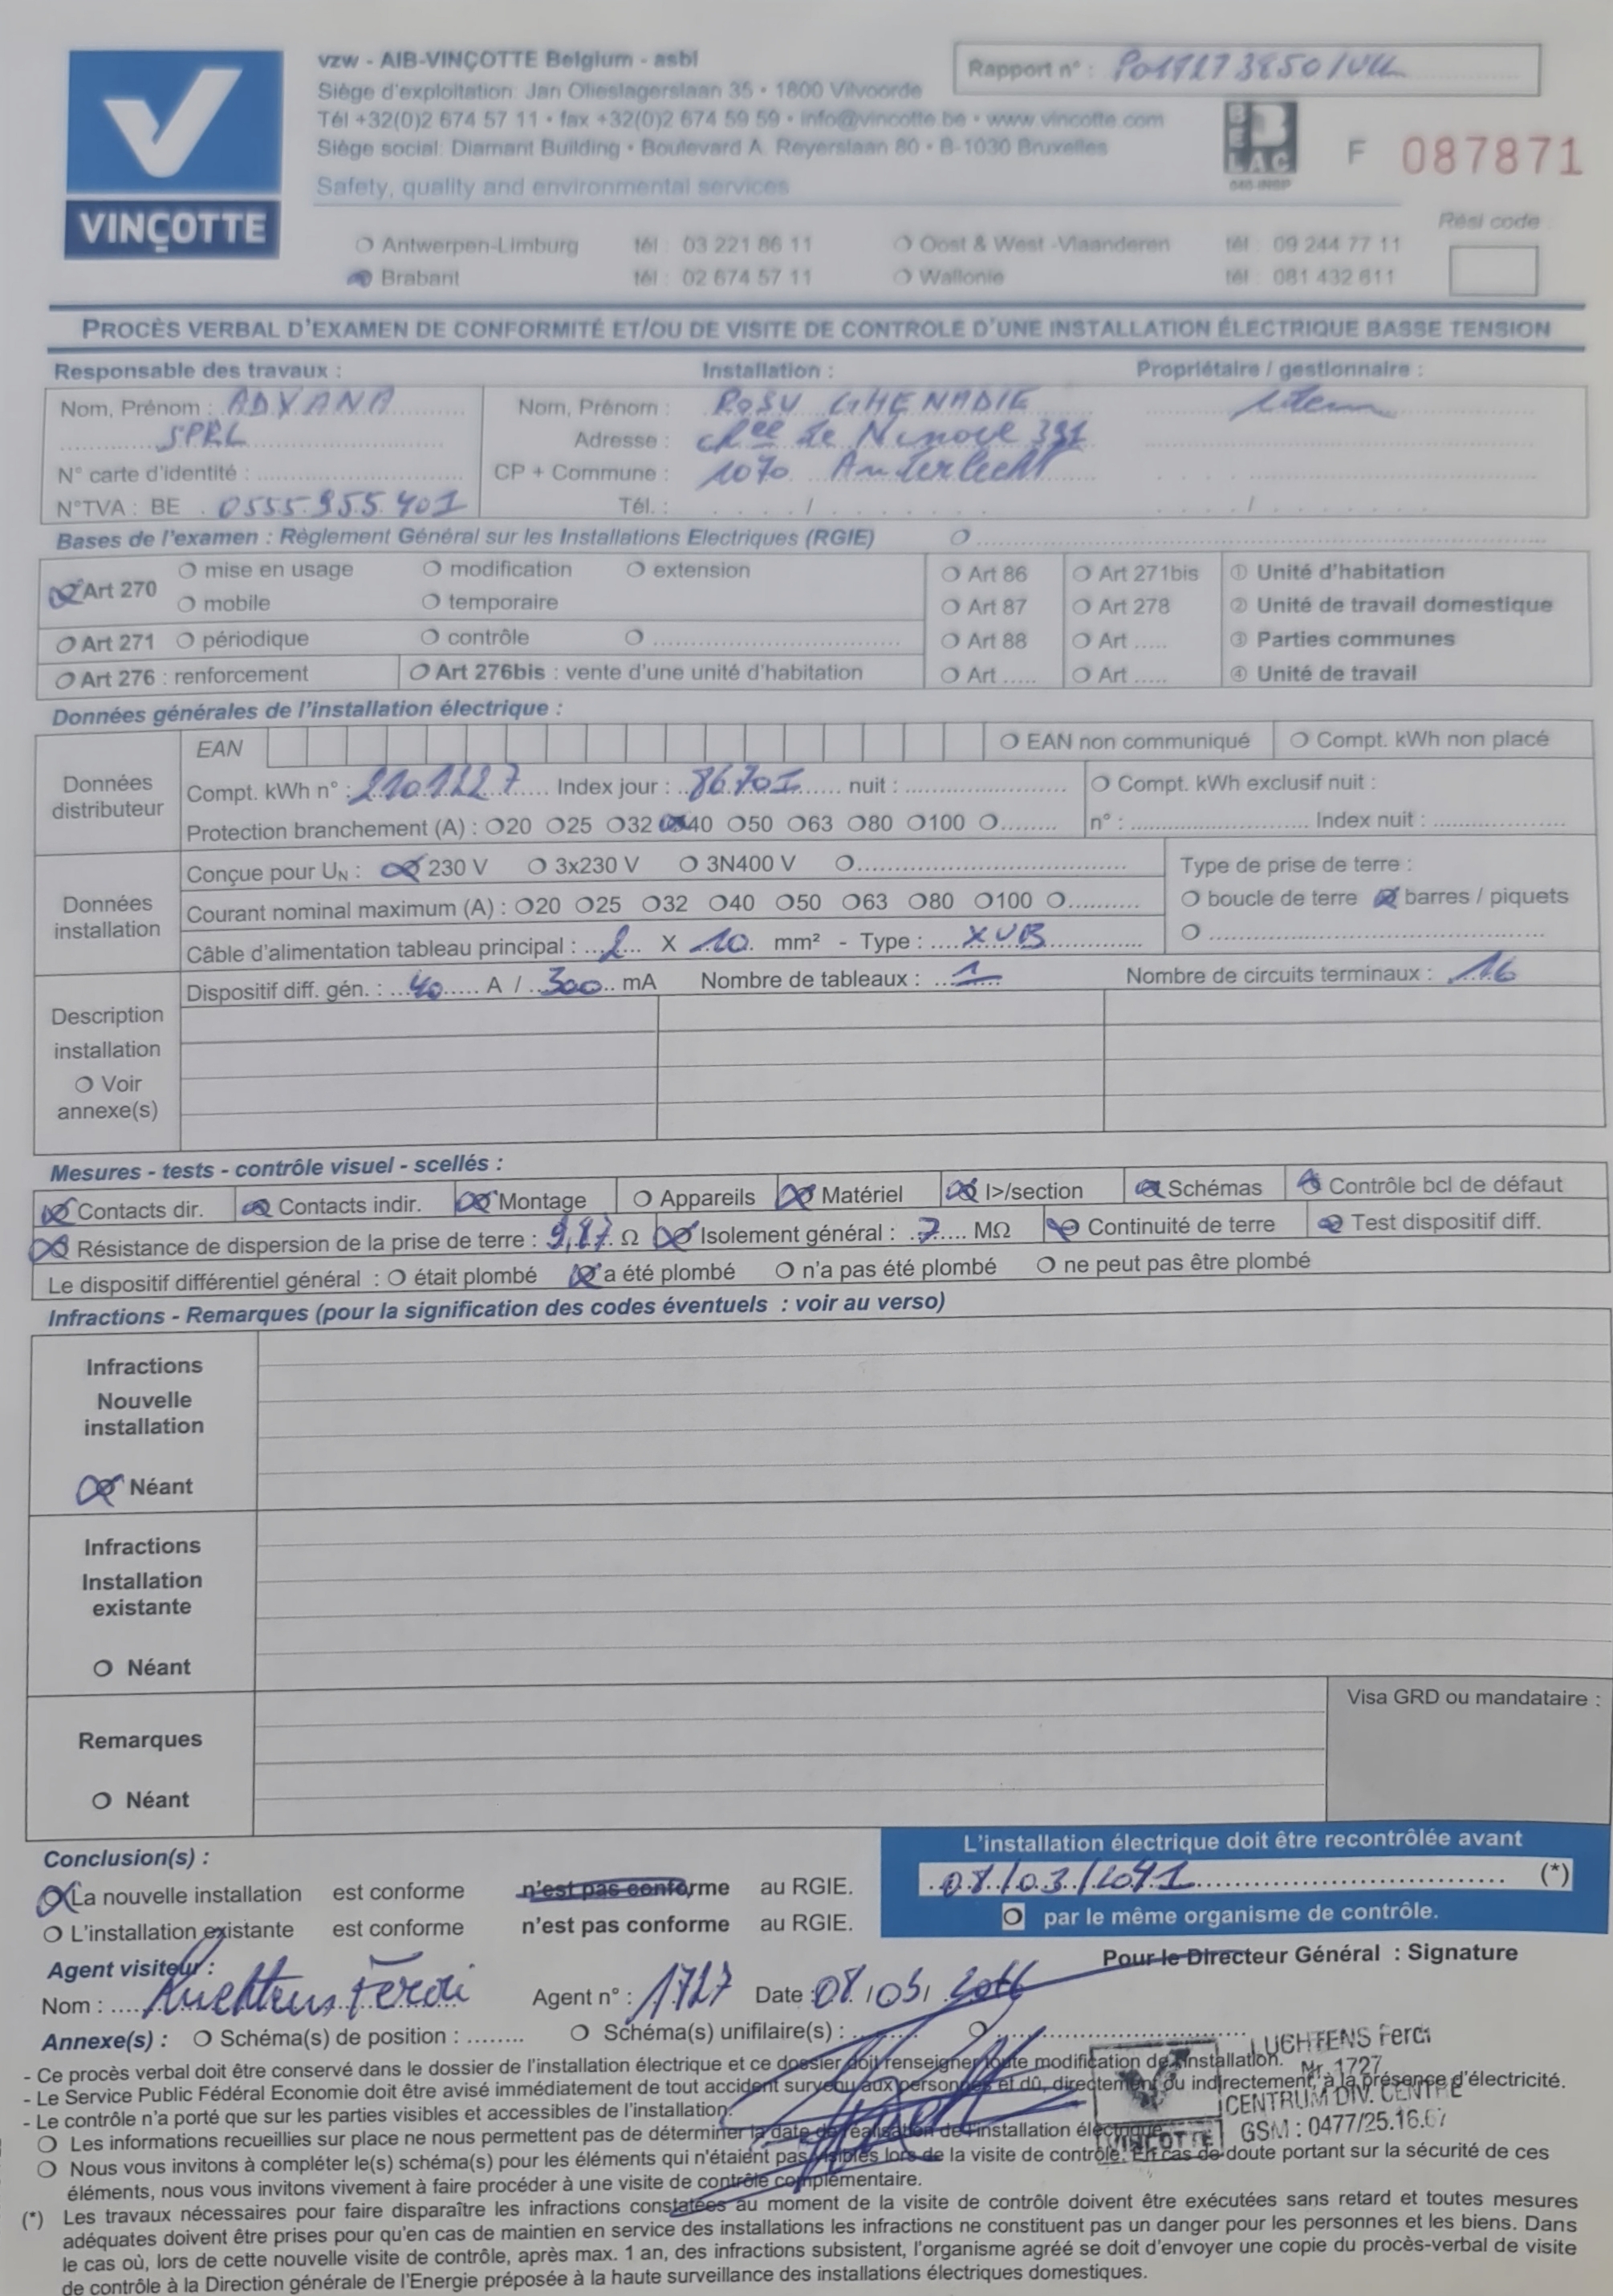 vzw - AIB-VINÇOTTE Belgium - asbl
Rapport n° :
Siège d'exploitation: Jan Olieslagerslaan 35 • 1800 Vilvoorde
Tél +32(0)2 674 57 11 • fax +32(0)2 674 59 59 • info@vincotte.be • www.vincotte.com
Siège social: Diamant Building • Boulevard A. Reyerslaan 80 • B-1030 Bruxelles
BELAC
F 087871
Safety, quality and environmental services
VINÇOTTE
Rési code
Antwerpen-Limburg tél : 03 221 86 11 Oost & West -Vlaanderen tél : 09 244 77 11
Brabant tél : 02 674 57 11 Wallonie tél : 081 432 611
PROCÈS VERBAL D'EXAMEN DE CONFORMITÉ ET/OU DE VISITE DE CONTROLE D'UNE INSTALLATION ÉLECTRIQUE BASSE TENSION
Responsable des travaux : Installation : Propriétaire / gestionnaire :
Nom, Prénom : ADVANA Nom, Prénom : ROSU GHENADIE
SPRL Adresse : Chée de Ninove 391
N° carte d'identité : CP + Commune : 1070 Anderlecht
N°TVA : BE 0555.955.401 Tél. : / /
Bases de l'examen : Règlement Général sur les Installations Electriques (RGIE)
Art 270 mise en usage modification extension Art 86 Art 271bis ① Unité d'habitation
mobile temporaire Art 87 Art 278 ② Unité de travail domestique
Art 271 périodique contrôle Art 88 Art ..... ③ Parties communes
Art 276 : renforcement Art 276bis : vente d'une unité d'habitation Art ..... Art ..... ④ Unité de travail
Données générales de l'installation électrique :
EAN EAN non communiqué Compt. kWh non placé
Données distributeur
Compt. kWh n° : 2101227 Index jour : 86701 nuit : Compt. kWh exclusif nuit :
Protection branchement (A) : 20 25 32 40 50 63 80 100 n° : Index nuit :
Conçue pour UN : 230 V 3x230 V 3N400 V Type de prise de terre :
Données installation
Courant nominal maximum (A) : 20 25 32 40 50 63 80 100 boucle de terre barres / piquets
Câble d'alimentation tableau principal : 2 X 10 mm² - Type : XVB
Dispositif diff. gén. : 40 A / 300 mA Nombre de tableaux : 1 Nombre de circuits terminaux : 16
Description
installation
Voir
annexe(s)
Mesures - tests - contrôle visuel - scellés :
Contacts dir. Contacts indir. Montage Appareils Matériel I>/section Schémas Contrôle bcl de défaut
Résistance de dispersion de la prise de terre : 9,87 Ω Isolement général : 7 MΩ Continuité de terre Test dispositif diff.
Le dispositif différentiel général : était plombé a été plombé n'a pas été plombé ne peut pas être plombé
Infractions - Remarques (pour la signification des codes éventuels : voir au verso)
Infractions
Nouvelle
installation
Néant
Infractions
Installation
existante
Néant
Visa GRD ou mandataire :
Remarques
Néant
L'installation électrique doit être recontrôlée avant
Conclusion(s) :
08/03/2041 (*)
La nouvelle installation est conforme n'est pas conforme au RGIE.
par le même organisme de contrôle.
L'installation existante est conforme n'est pas conforme au RGIE.
Pour le Directeur Général : Signature
Agent visiteur :
Nom : Luchtens Ferdi Agent n° : 1727 Date : 08/03/2016
Annexe(s) : Schéma(s) de position : ........ Schéma(s) unifilaire(s) :
LUCHTENS Ferdi
Nr. 1727
CENTRUM DIV. CENTRE
GSM : 0477/25.16.67
VINÇOTTE
- Ce procès verbal doit être conservé dans le dossier de l'installation électrique et ce dossier doit renseigner toute modification de l'installation.
- Le Service Public Fédéral Economie doit être avisé immédiatement de tout accident survenu aux personnes et dû, directement ou indirectement, à la présence d'électricité.
- Le contrôle n'a porté que sur les parties visibles et accessibles de l'installation.
Les informations recueillies sur place ne nous permettent pas de déterminer la date de réalisation de l'installation électrique.
Nous vous invitons à compléter le(s) schéma(s) pour les éléments qui n'étaient pas visibles lors de la visite de contrôle. En cas de doute portant sur la sécurité de ces
éléments, nous vous invitons vivement à faire procéder à une visite de contrôle complémentaire.
(*) Les travaux nécessaires pour faire disparaître les infractions constatées au moment de la visite de contrôle doivent être exécutées sans retard et toutes mesures
adéquates doivent être prises pour qu'en cas de maintien en service des installations les infractions ne constituent pas un danger pour les personnes et les biens. Dans
le cas où, lors de cette nouvelle visite de contrôle, après max. 1 an, des infractions subsistent, l'organisme agréé se doit d'envoyer une copie du procès-verbal de visite
de contrôle à la Direction générale de l'Energie préposée à la haute surveillance des installations électriques domestiques.